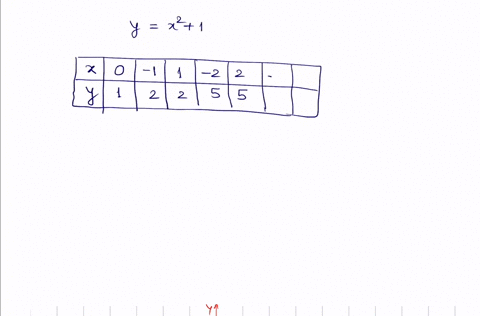 y = x²+1
x 0 -1 1 -2 2 -
y 1 2 2 5 5
y↑